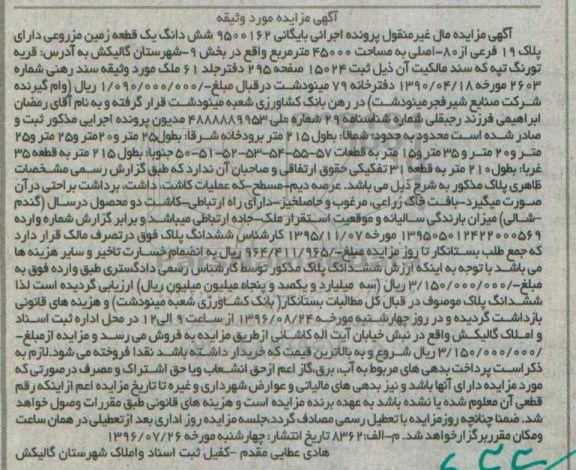 آگهی مزایده مورد وثیقه
آگهی مزایده مال غیرمنقول پرونده اجرائی بایگانی ۹۵۰۰۱۶۲ شش دانگ یک قطعه زمین مزروعی دارای
پلاک ۱۹ فرعی از۸۰-اصلی به مساحت ۴۵۰۰۰ مترمربع واقع در بخش ۹-شهرستان گالیکش به آدرس: قریه
تورنگ تپه که سند مالکیت آن ذیل ثبت ۱۵۰۲۴ صفحه ۲۹۵ دفترجلد ۶۱ ملک مورد وثیقه سند رهنی شماره
۲۶۰۳ مورخه ۱۳۹۰/۰۴/۱۸ دفترخانه ۷۹ مینودشت درقبال مبلغ/۱/۰۹۰/۰۰۰/۰۰۰- ریال (وام گیرنده
شرکت صنایع شیرفجرمینودشت) در رهن بانک کشاورزی شعبه مینودشت قرار گرفته و به نام آقای رمضان
ابراهیمی فرزند رجبقلی شماره شناسنامه ۲۹ شماره ملی ۴۸۸۸۸۸۹۹۵۳ مدیون پرونده اجرایی مذکور ثبت و
صادر شده است محدود به حدود: شمالا: بطول ۲۱۵ متر برودخانه شرقا: بطول۲۵ متر و۲۰متر و ۲۵ متر و۲۵
متر و ۲۰ متر و ۳۵ متر و۱۵ متر به قطعات ۵۷-۵۵-۵۴-۵۳-۵۲-۵۱-۵۰ جنوبا: بطول ۲۱۵ متر به قطعه ۳۵
غربا: بطول۲۱۰ متر به قطعه ۳۱ تفکیکی حقوق ارتفاقی و صاحبان آن ندارد که طبق گزارش رسمی مشخصات
ظاهری پلاک مذکور به شرح ذیل می باشد. عرصه دیم-مسطح-که عملیات کاشت، داشت، برداشت براحتی درآن
صورت میگیرد-بافت خاک زراعی، مرغوب و حاصلخیز-دارای راه ارتباطی-کاشت دو محصول درسال (گندم
-شالی) میزان بارندگی سالیانه و موقعیت استقرار ملک-جاده ارتباطی میباشد و برابر گزارش شماره وارده
۱۳۹۵۰۵۰۱۲۴۲۲۰۰۰۵۶۹ مورخه ۱۳۹۵/۱۱/۰۷ کارشناس ششدانگ پلاک فوق درتصرف مالک قرار دارد
که جمع طلب بستانکار تا روز مزایده مبلغ/۹۶۴/۴۱۱/۹۶۵- ریال به انضمام خسارت تاخیر و سایر هزینه ها
می باشد با توجه به اینکه ارزش ششدانگ پلاک مذکور توسط کارشناس رسمی دادگستری طبق وارده فوق به
مبلغ/۳/۱۵۰/۰۰۰/۰۰۰- ریال (سه میلیارد و یکصد و پنجاه میلیون ریال) ارزیابی گردیده است لذا
ششدانگ پلاک موصوف در قبال کل مطالبات بستانکار( بانک کشاورزی شعبه مینودشت) و هزینه های قانونی
بازداشت گردیده و در روز چهارشنبه مورخه ۱۳۹۶/۰۸/۲۴ از ساعت ۹ الی۱۲ در محل اداره ثبت اسناد
و املاک گالیکش واقع در نبش خیابان آیت اله کاشانی ازطریق مزایده به فروش می رسد و مزایده از مبلغ-
/۳/۱۵۰/۰۰۰/۰۰۰ ریال شروع و به بالاترین قیمت که خریدار داشته باشد نقدا فروخته می شود.لازم به
ذکر است پرداخت بدهی های مربوط به آب، برق،گاز اعم ازحق انشعاب ویا حق اشتراک و مصرف درصورتی که
مورد مزایده دارای آنها باشد و نیز بدهی های مالیاتی و عوارض شهرداری و غیره تا تاریخ مزایده اعم از اینکه رقم
قطعی آن معلوم شده یا نشده باشد به عهده برنده مزایده است و هزینه های قانونی طبق مقررات وصول خواهد
شد. ضمنا چنانچه روزمزایده با تعطیل رسمی مصادف گردد،جلسه مزایده روز اداری بعد ازتعطیلی در همان ساعت
ومکان مقرربرگزارخواهد شد. م-الف:۸۳۶۲ تاریخ انتشار: چهارشنبه مورخه ۱۳۹۶/۰۷/۲۶
هادی عطایی مقدم -کفیل ثبت اسناد واملاک شهرستان گالیکش